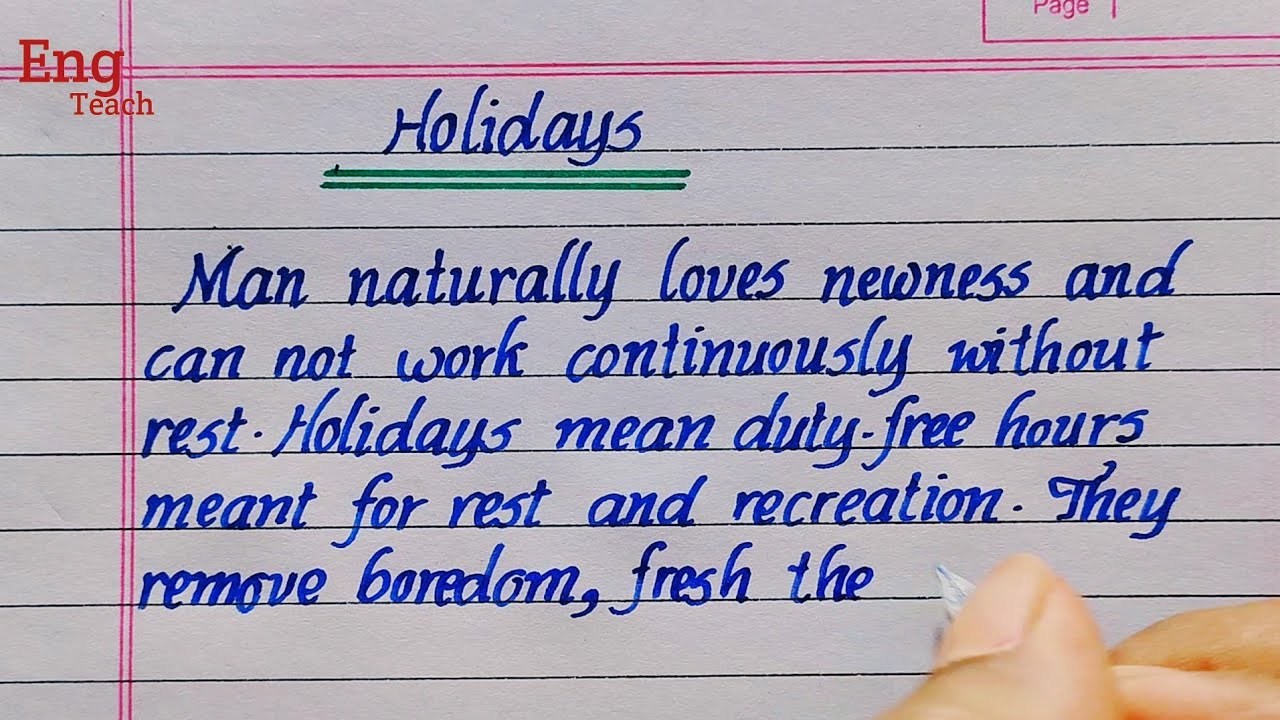 Page
Eng
Teach
Holidays
Man naturally loves newness and
can not work continuously without
rest. Holidays mean duty-free hours
meant for rest and recreation. They
remove boredom, fresh the